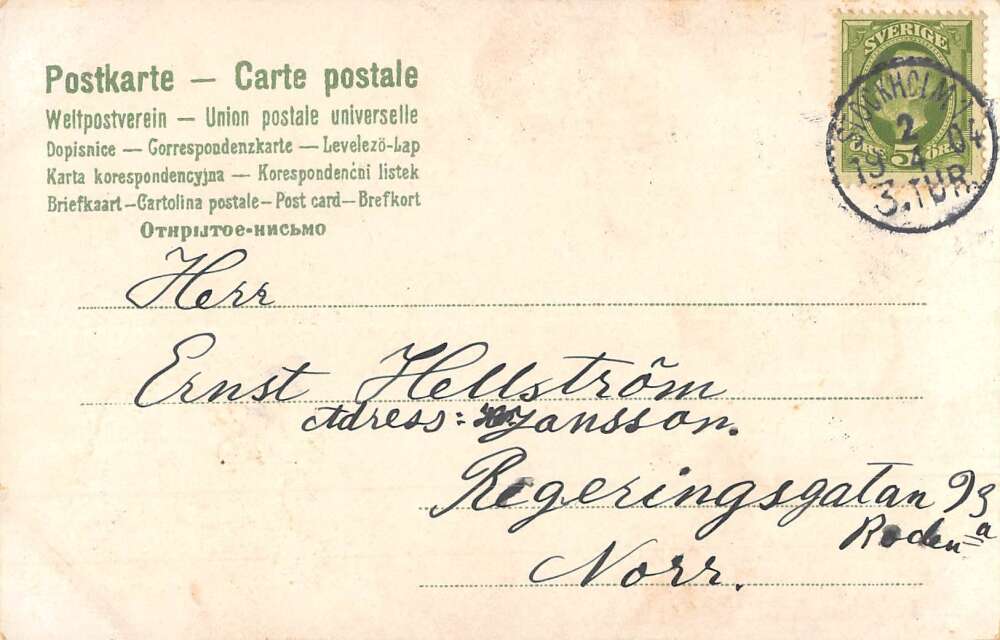 Postkarte — Carte postale
Weltpostverein — Union postale universelle
Dopisnice — Correspondenzkarte — Levelező-Lap
Karta korespondencyjna — Korespondenčni listek
Briefkaart—Cartolina postale—Post card—Brefkort
Открытое-письмо
SVERIGE
STOCKHOLM 1
2
19 4 04
3.TUR.
5
ÖRE
Herr
Ernst Hellström
Adress: Jansson.
Regeringsgatan 93
a
Roden
Norr.